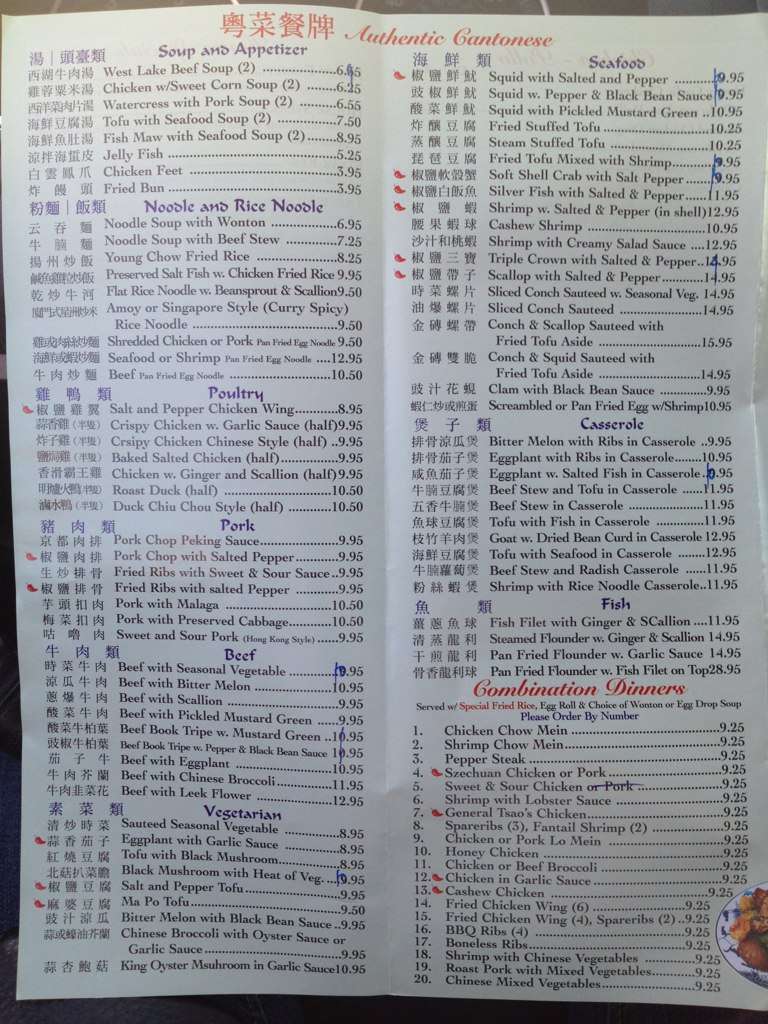 粵菜餐牌 Authentic Cantonese
湯|頭臺類 Soup and Appetizer
西湖牛肉湯 West Lake Beef Soup (2) ....................6.
雞蓉粟米湯 Chicken w/Sweet Corn Soup (2) ............6.25
西洋菜肉片湯 Watercress with Pork Soup (2) ..............6.55
海鮮豆腐湯 Tofu with Seafood Soup (2) .................7.50
海鮮魚肚湯 Fish Maw with Seafood Soup (2) ............8.95
涼拌海蜇皮 Jelly Fish ....................5.25
白雲鳳爪 Chicken Feet ....................3.95
炸饅頭 Fried Bun ....................3.95
粉麵|飯類 Noodle and Rice Noodle
云吞麵 Noodle Soup with Wonton ....................6.95
牛腩麵 Noodle Soup with Beef Stew ....................7.25
揚州炒飯 Young Chow Fried Rice ....................8.25
鹹魚雞粒炒飯 Preserved Salt Fish w. Chicken Fried Rice 9.95
乾炒牛河 Flat Rice Noodle w. Beansprout & Scallion 9.50
廈門式星洲炒米 Amoy or Singapore Style (Curry Spicy)
Rice Noodle ....................9.50
雞或肉絲炒麵 Shredded Chicken or Pork Pan Fried Egg Noodle 9.50
海鮮或蝦炒麵 Seafood or Shrimp Pan Fried Egg Noodle ....12.95
牛肉炒麵 Beef Pan Fried Egg Noodle ....................10.50
雞鴨類 Poultry
椒鹽雞翼 Salt and Pepper Chicken Wing............8.95
蒜香雞(半隻) Crispy Chicken w. Garlic Sauce (half) 9.95
炸子雞(半隻) Crsipy Chicken Chinese Style (half) ..9.95
鹽焗雞(半隻) Baked Salted Chicken (half)............9.95
香滑霸王雞 Chicken w. Ginger and Scallion (half) 9.95
明爐火鴨(半隻) Roast Duck (half) ....................10.50
滷水鴨(半隻) Duck Chiu Chou Style (half) ............10.50
豬肉類 Pork
京都肉排 Pork Chop Peking Sauce....................9.95
椒鹽肉排 Pork Chop with Salted Pepper............9.95
生炒排骨 Fried Ribs with Sweet & Sour Sauce ..9.95
椒鹽排骨 Fried Ribs with salted Pepper ............9.95
芋頭扣肉 Pork with Malaga ....................10.50
梅菜扣肉 Pork with Preserved Cabbage............10.50
咕嚕肉 Sweet and Sour Pork (Hong Kong Style)......9.95
牛肉類 Beef
時菜牛肉 Beef with Seasonal Vegetable ............9.95
涼瓜牛肉 Beef with Bitter Melon ....................10.95
蔥爆牛肉 Beef with Scallion ....................9.95
酸菜牛肉 Beef with Pickled Mustard Green ......9.95
酸菜牛柏葉 Beef Book Tripe w. Mustard Green ..10.95
豉椒牛柏葉 Beef Book Tripe w. Pepper & Black Bean Sauce 10.95
茄子牛 Beef with Eggplant ....................10.95
牛肉芥蘭 Beef with Chinese Broccoli............11.95
牛肉韭菜花 Beef with Leek Flower ....................12.95
素菜類 Vegetarian
清炒時菜 Sauteed Seasonal Vegetable ............8.95
蒜香茄子 Eggplant with Garlic Sauce ............8.95
紅燒豆腐 Tofu with Black Mushroom............8.95
北菇扒菜膽 Black Mushroom with Heat of Veg. ...9.95
椒鹽豆腐 Salt and Pepper Tofu....................9.95
麻婆豆腐 Ma Po Tofu....................9.50
豉汁涼瓜 Bitter Melon with Black Bean Sauce ..9.95
蒜或蠔油芥蘭 Chinese Broccoli with Oyster Sauce or
Garlic Sauce....................9.95
蒜杏鮑菇 King Oyster Msuhroom in Garlic Sauce 10.95
海鮮類 Seafood
椒鹽鮮魷 Squid with Salted and Pepper ............9.95
豉椒鮮魷 Squid w. Pepper & Black Bean Sauce 9.95
酸菜鮮魷 Squid with Pickled Mustard Green ..10.95
炸釀豆腐 Fried Stuffed Tofu ....................10.25
蒸釀豆腐 Steam Stuffed Tofu ....................10.25
琵琶豆腐 Fried Tofu Mixed with Shrimp............9.95
椒鹽軟殼蟹 Soft Shell Crab with Salt Pepper ......9.95
椒鹽白飯魚 Silver Fish with Salted & Pepper......11.95
椒鹽蝦 Shrimp w. Salted & Pepper (in shell) 12.95
腰果蝦球 Cashew Shrimp ....................10.95
沙汁和桃蝦 Shrimp with Creamy Salad Sauce ....12.95
椒鹽三寶 Triple Crown with Salted & Pepper..14.95
椒鹽帶子 Scallop with Salted & Pepper............14.95
時菜螺片 Sliced Conch Sauteed w. Seasonal Veg. 14.95
油爆螺片 Sliced Conch Sauteed ....................14.95
金磚螺帶 Conch & Scallop Sauteed with
Fried Tofu Aside ....................15.95
金磚雙脆 Conch & Squid Sauteed with
Fried Tofu Aside ....................14.95
豉汁花蜆 Clam with Black Bean Sauce ............9.95
蝦仁炒或煎蛋 Screambled or Pan Fried Egg w/Shrimp 10.95
煲子類 Casserole
排骨涼瓜煲 Bitter Melon with Ribs in Casserole ..9.95
排骨茄子煲 Eggplant with Ribs in Casserole........10.95
咸魚茄子煲 Eggplant w. Salted Fish in Casserole..9.95
牛腩豆腐煲 Beef Stew and Tofu in Casserole ......11.95
五香牛腩煲 Beef Stew in Casserole ....................11.95
魚球豆腐煲 Tofu with Fish in Casserole ............11.95
枝竹羊肉煲 Goat w. Dried Bean Curd in Casserole 12.95
海鮮豆腐煲 Tofu with Seafood in Casserole ........12.95
牛腩蘿蔔煲 Beef Stew and Radish Casserole ........11.95
粉絲蝦煲 Shrimp with Rice Noodle Casserole..11.95
魚類 Fish
薑蔥魚球 Fish Filet with Ginger & SCallion ....11.95
清蒸龍利 Steamed Flounder w. Ginger & Scallion 14.95
干煎龍利 Pan Fried Flounder w. Garlic Sauce 14.95
骨香龍利球 Pan Fried Flounder w. Fish Filet on Top 28.95
Combination Dinners
Served w/ Special Fried Rice, Egg Roll & Choice of Wonton or Egg Drop Soup
Please Order By Number
1. Chicken Chow Mein ....................9.25
2. Shrimp Chow Mein....................9.25
3. Pepper Steak ....................9.25
4. Szechuan Chicken or Pork ....................9.25
5. Sweet & Sour Chicken or Pork ....................9.25
6. Shrimp with Lobster Sauce ....................9.25
7. General Tsao's Chicken....................9.25
8. Spareribs (3), Fantail Shrimp (2) ............9.25
9. Chicken or Pork Lo Mein ....................9.25
10. Honey Chicken ....................9.25
11. Chicken or Beef Broccoli ....................9.25
12. Chicken in Garlic Sauce ....................9.25
13. Cashew Chicken ....................9.25
14. Fried Chicken Wing (6) ....................9.25
15. Fried Chicken Wing (4), Spareribs (2) ..9.25
16. BBQ Ribs (4) ....................9.25
17. Boneless Ribs....................9.25
18. Shrimp with Chinese Vegetables ............9.25
19. Roast Pork with Mixed Vegetables............9.25
20. Chinese Mixed Vegetables....................9.25